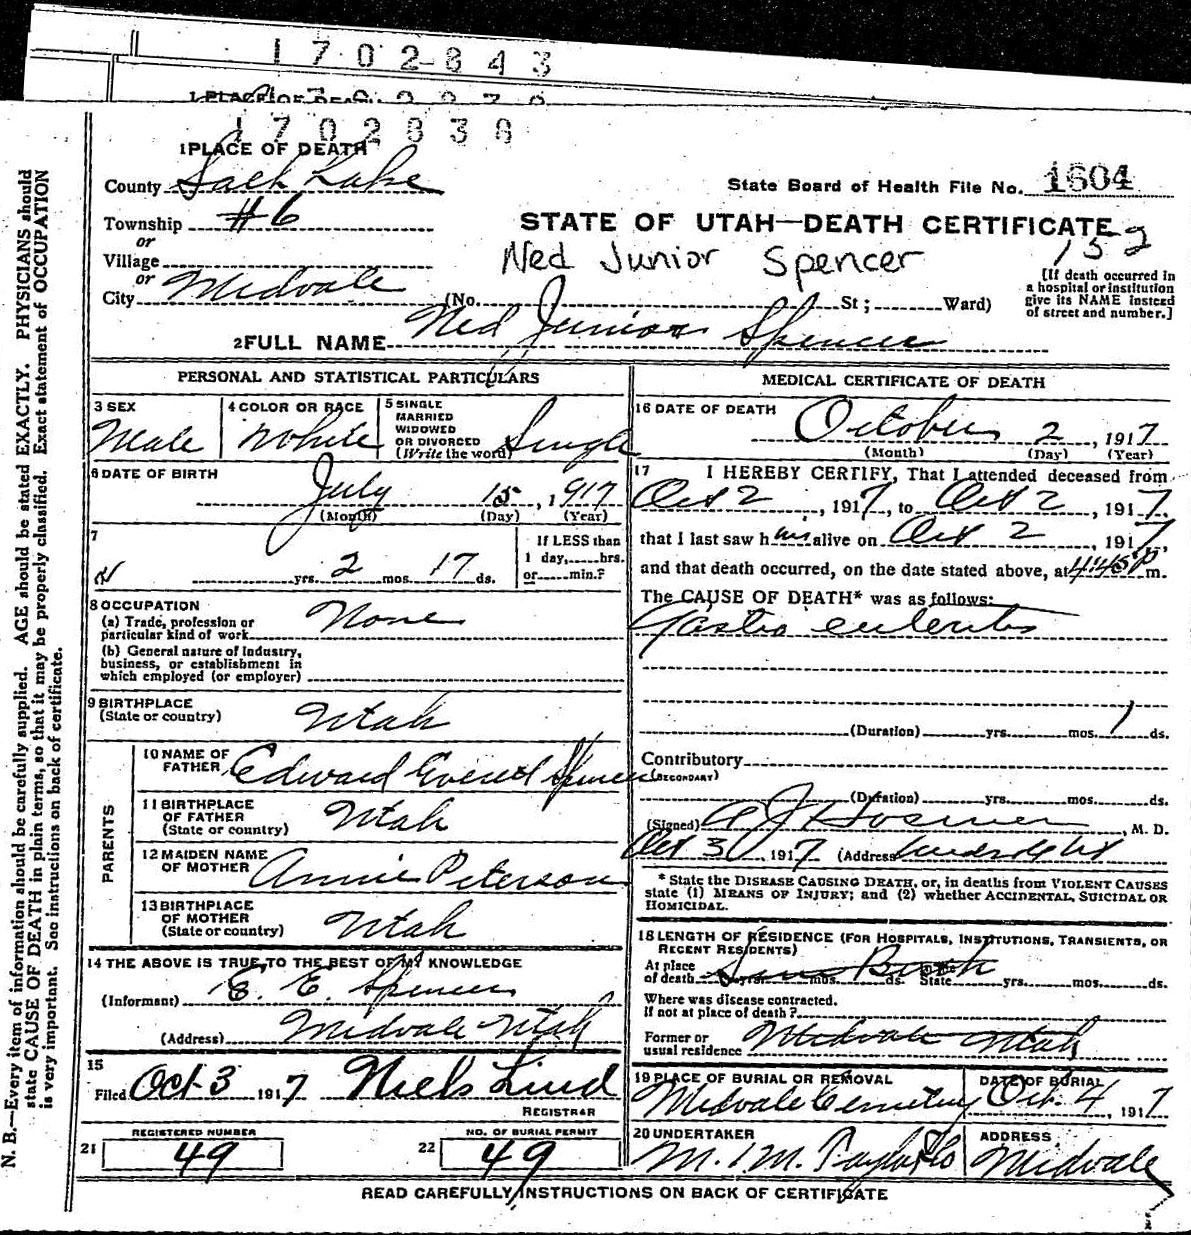 1702843
1 PLACE OF DEATH
1702838
1 PLACE OF DEATH
County Salt Lake
State Board of Health File No. 1604
Township #6
STATE OF UTAH—DEATH CERTIFICATE
or
Village
Ned Junior Spencer
152
or
City Midvale (No. St; Ward)
[If death occurred in
a hospital or institution
give its NAME instead
of street and number.]
2 FULL NAME Ned Junior Spencer
PERSONAL AND STATISTICAL PARTICULARS
3 SEX
Male
4 COLOR OR RACE
White
5 SINGLE
MARRIED
WIDOWED
OR DIVORCED
(Write the word)
Single
6 DATE OF BIRTH
July 15, 1917
(Month) (Day) (Year)
7
yrs. 2 mos. 17 ds.
If LESS than
1 day, hrs.
or min.?
8 OCCUPATION
(a) Trade, profession or
particular kind of work
None
(b) General nature of Industry,
business, or establishment in
which employed (or employer)
9 BIRTHPLACE
(State or country)
Utah
PARENTS
10 NAME OF
FATHER
Edward Everet Spencer
11 BIRTHPLACE
OF FATHER
(State or country)
Utah
12 MAIDEN NAME
OF MOTHER
Annie Peterson
13 BIRTHPLACE
OF MOTHER
(State or country)
Utah
14 THE ABOVE IS TRUE TO THE BEST OF MY KNOWLEDGE
(Informant) E. E. Spencer
(Address) Midvale Utah
15
Filed Oct 3 1917 Niels Lind
REGISTRAR
REGISTERED NUMBER
21 49
NO. OF BURIAL PERMIT
22 49
MEDICAL CERTIFICATE OF DEATH
16 DATE OF DEATH
October 2, 1917
(Month) (Day) (Year)
17 I HEREBY CERTIFY, That I attended deceased from
Oct 2, 1917, to Oct 2, 1917.
that I last saw him alive on Oct 2, 1917,
and that death occurred, on the date stated above, at 4:45 P m.
The CAUSE OF DEATH* was as follows:
Gastro enteritis
(Duration) yrs. mos. 1 ds.
Contributory
(SECONDARY)
(Duration) yrs. mos. ds.
(Signed) A J Hosmer, M. D.
Oct 3, 1917 (Address
* State the DISEASE CAUSING DEATH, or, in deaths from VIOLENT CAUSES
state (1) MEANS OF INJURY; and (2) whether ACCIDENTAL, SUICIDAL OR
HOMICIDAL.
18 LENGTH OF RESIDENCE (FOR HOSPITALS, INSTITUTIONS, TRANSIENTS, OR
RECENT RESIDENTS)
At place
of death yrs. mos. ds. State yrs. mos. ds.
Where was disease contracted.
if not at place of death?
Former or
usual residence Midvale Utah
19 PLACE OF BURIAL OR REMOVAL
Midvale Cemetery
DATE OF BURIAL
Oct. 4, 1917
20 UNDERTAKER
M. M.
ADDRESS
Midvale
READ CAREFULLY INSTRUCTIONS ON BACK OF CERTIFICATE
N. B.—Every item of information should be carefully supplied. AGE should be stated EXACTLY. PHYSICIANS should
state CAUSE OF DEATH in plain terms, so that it may be properly classified. Exact statement of OCCUPATION
is very important. See instructions on back of certificate.